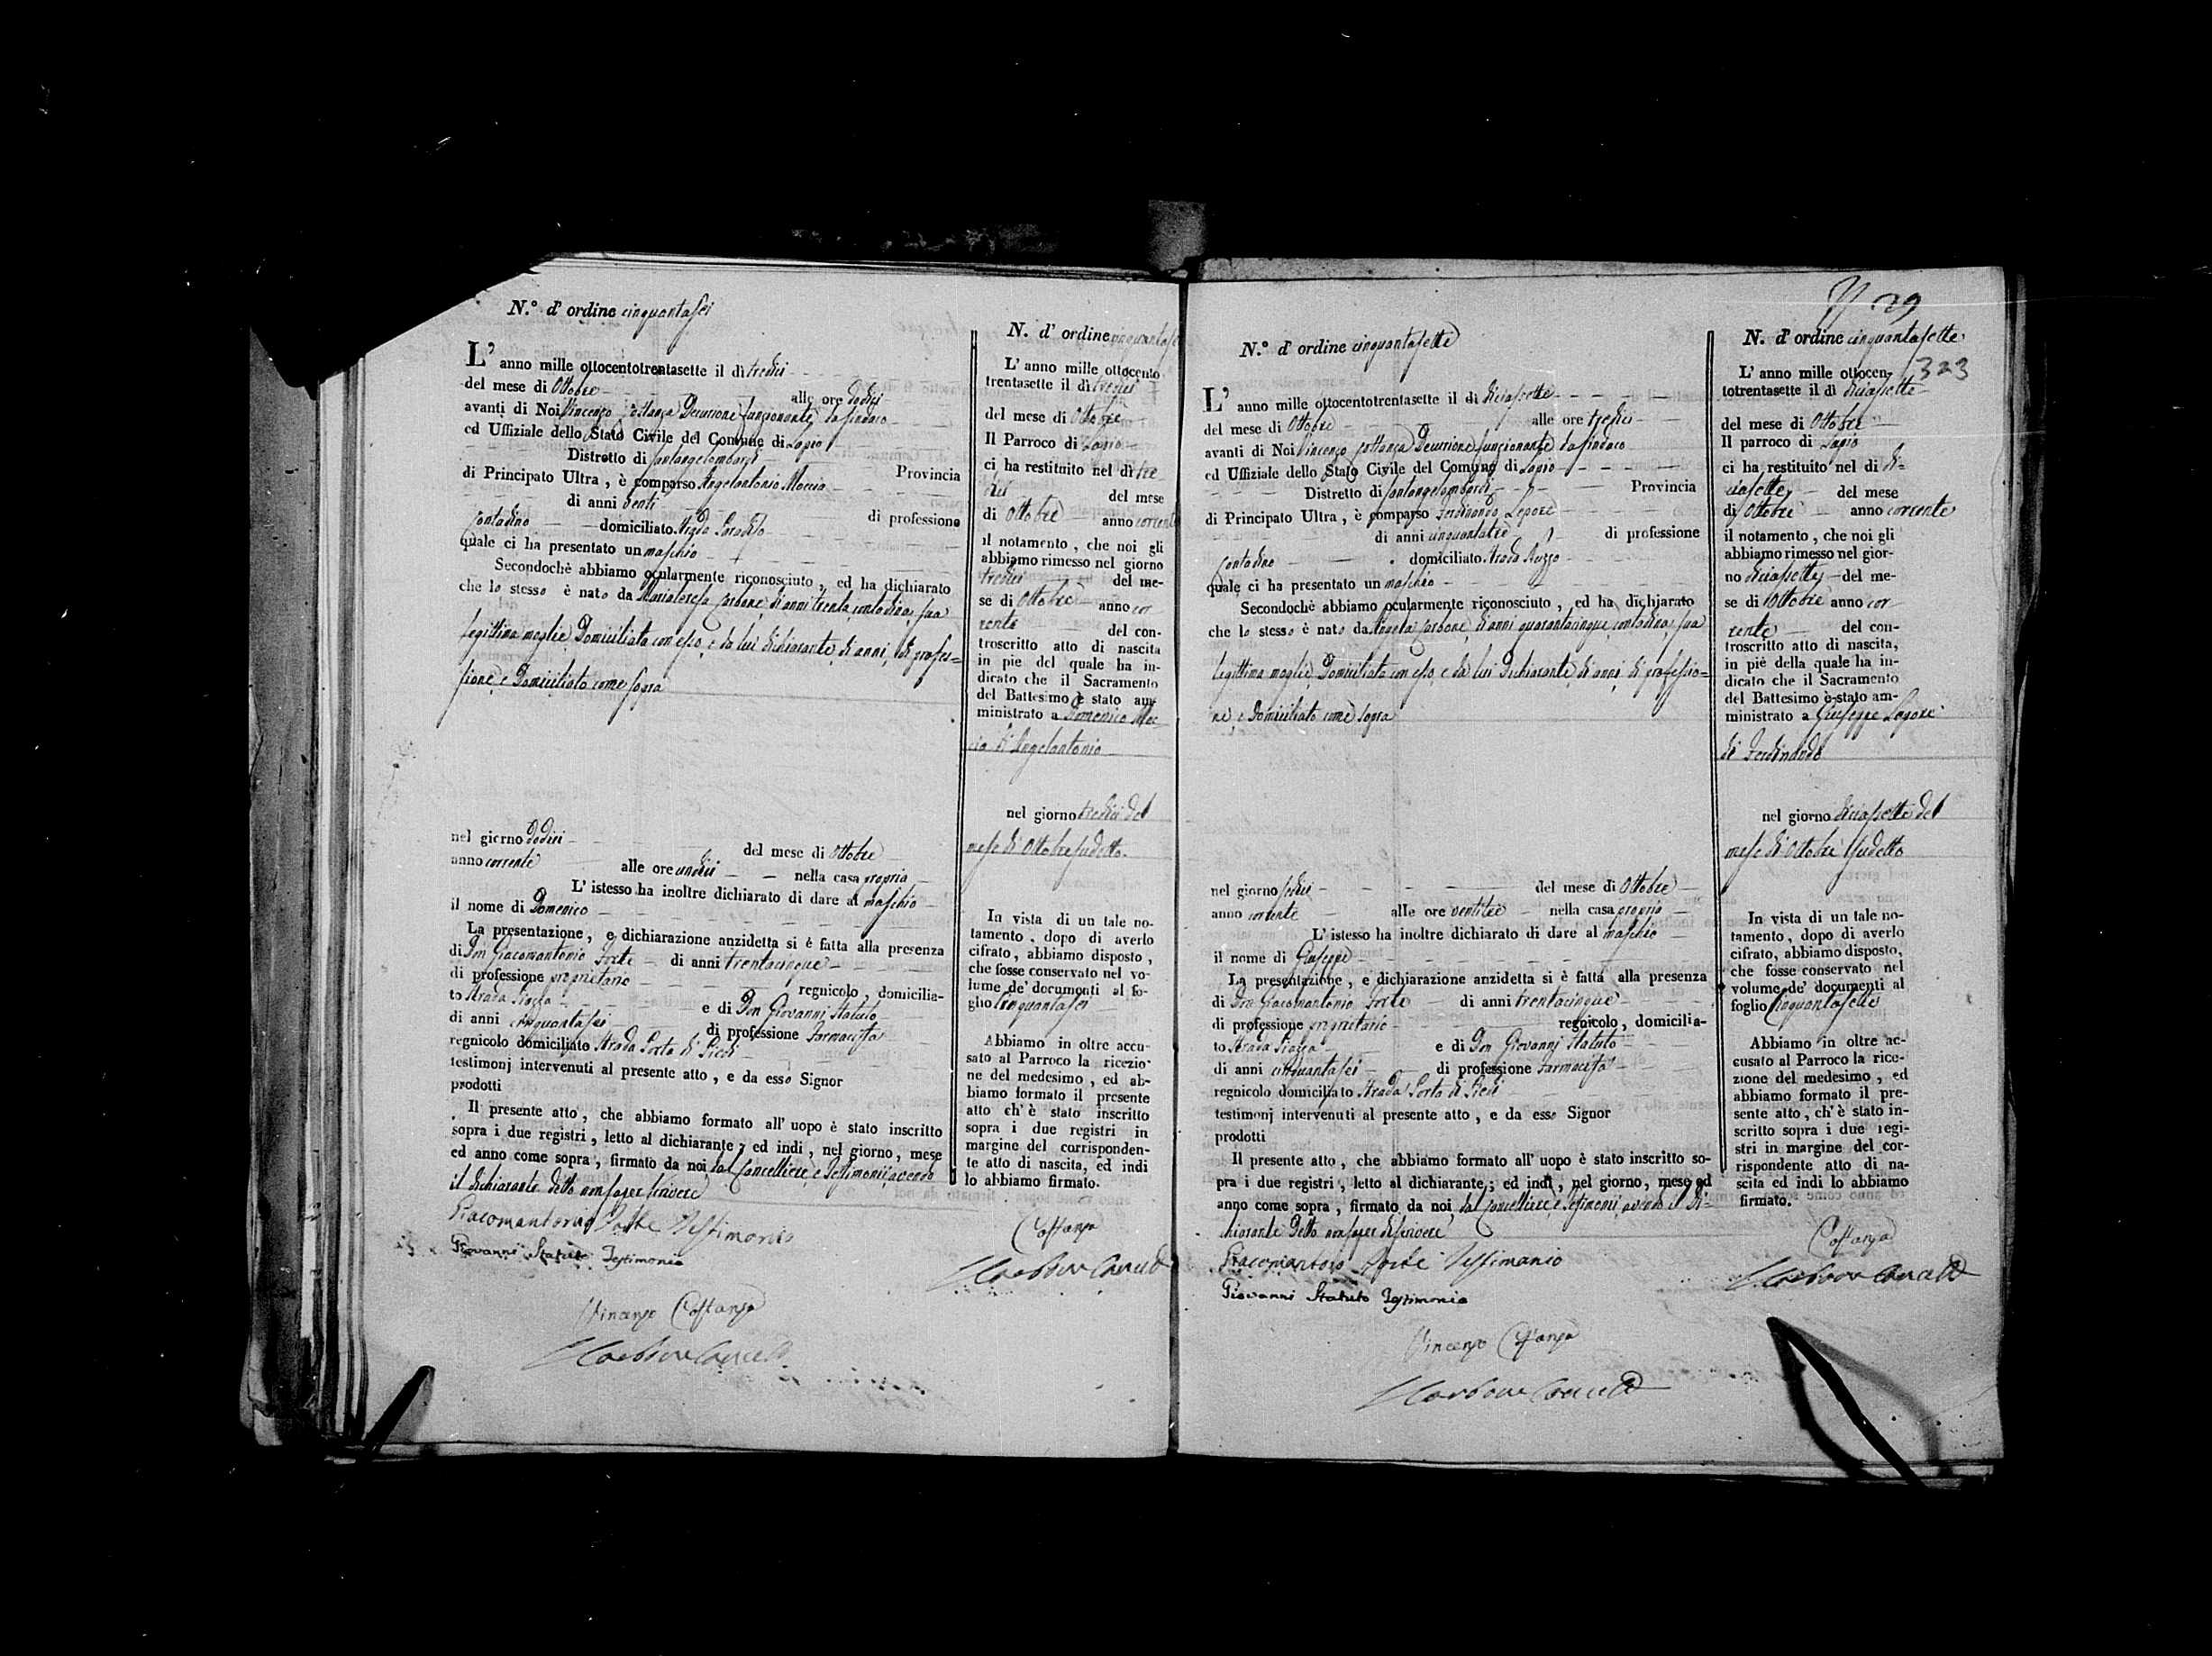 N.° d' ordine cinquantasei
L' anno mille ottocentotrentasette il dì tredici
del mese di Ottobre alle ore dodici
avanti di Noi Vincenzo Costanza Decurione funzionante da sindaco
ed Uffiziale dello Stato Civile del Comune di Lapio
Distretto di Santangelombardi Provincia
di Principato Ultra, è comparso Angelantonio Moccia
di anni venti di professione
Contadino domiciliato Strada Paradiso
quale ci ha presentato un maschio
Secondochè abbiamo ocularmente riconosciuto, ed ha dichiarato
che lo stesso è nato da Mariateresa Carbone di anni trenta contadina, sua
legittima moglie Domiciliata con esso, e da lui dichiarante, di anni, di profes=
sione, e Domiciliato come sopra
nel giorno dodici del mese di Ottobre
anno corrente alle ore undici nella casa propria
L' istesso ha inoltre dichiarato di dare al maschio
il nome di Domenico
La presentazione, e dichiarazione anzidetta si è fatta alla presenza
di Don Giacomantonio Forte di anni trentacinque
di professione proprietario regnicolo, domicilia-
to Strada Piazza e di Don Giovanni Statuto
di anni cinquantasei di professione Farmacista
regnicolo domiciliato Strada Porta di Piedi
testimonj intervenuti al presente atto, e da esso Signor
prodotti
Il presente atto, che abbiamo formato all' uopo è stato inscritto
sopra i due registri, letto al dichiarante, ed indi, nel giorno, mese
ed anno come sopra, firmato da noi dal Cancelliere, e Testimonii, avendo
il dichiarante detto non saper scrivere
Giacomantonio Forte Testimonio
Giovanni Statuto Testimonio
Vincenzo Costanza
Carbone Cancell
N. d' ordine cinquantase
L' anno mille ottocento
trentasette il dì tredici
del mese di Ottobre
Il Parroco di Lapio
ci ha restituito nel dì tre
dici del mese
di Ottobre anno corrente
il notamento, che noi gli
abbiamo rimesso nel giorno
tredici del me-
se di Ottobre anno cor
rente del con-
troscritto atto di nascita
in pie del quale ha in-
dicato che il Sacramento
del Battesimo è stato am-
ministrato a Domenico Moc-
cia di Angelantonio
nel giorno tredici del
mese di Ottobre sudetto.
In vista di un tale no-
tamento, dopo di averlo
cifrato, abbiamo disposto,
che fosse conservato nel vo-
lume de' documenti al fo-
glio Cinquantasei
Abbiamo in oltre accu-
sato al Parroco la ricezio-
ne del medesimo, ed ab-
biamo formato il presente
atto ch' è stato inscritto
sopra i due registri in
margine del corrisponden-
te atto di nascita, ed indi
lo abbiamo firmato.
Costanza
Carbone Cancell
N.° d' ordine cinquantasette
L' anno mille ottocentotrentasette il dì diciassette
del mese di Ottobre alle ore tredici
avanti di Noi Vincenzo Costanza Decurione funzionante da sindaco
ed Uffiziale dello Stato Civile del Comune di Lapio
Distretto di Santangelombardi Provincia
di Principato Ultra, è comparso Ferdinando Lepore
di anni cinquantatre di professione
Contadino domiciliato Strada Ruzzo
quale ci ha presentato un maschio
Secondochè abbiamo ocularmente riconosciuto, ed ha dichiarato
che lo stesso è nato da Angela Carbone, di anni quarantacinque contadina, sua
legittima moglie, Domiciliata con esso, e da lui Dichiarante, di anni, di professio=
ne, e Domiciliato come sopra
nel giorno sedici del mese di Ottobre
anno corrente alle ore ventitre nella casa propria
L' istesso ha inoltre dichiarato di dare al maschio
il nome di Giuseppe
La presentazione, e dichiarazione anzidetta si è fatta alla presenza
di Don Giacomantonio Forte di anni trentacinque
di professione proprietario regnicolo, domicilia-
to Strada Piazza e di Don Giovanni Statuto
di anni cinquantasei di professione Farmacista
regnicolo domiciliato Strada Porta di Piedi
testimonj intervenuti al presente atto, e da esso Signor
prodotti
Il presente atto, che abbiamo formato all' uopo è stato inscritto so-
pra i due registri, letto al dichiarante; ed indi, nel giorno, mese ed
anno come sopra, firmato da noi dal Cancelliere, e Testimonii, avendo il Di-
chiarante Detto non saper di scrivere
Giacomantonio Forte Testimonio
Giovanni Statuto Testimonio
Vincenzo Costanza
Carbone Cancell
29
N. d' ordine cinquantasette
323
L' anno mille ottocen-
totrentasette il dì diciassette
del mese di Ottobre
Il parroco di Lapio
ci ha restituito nel dì di=
ciasette del mese
di Ottobre anno corrente
il notamento, che noi gli
abbiamo rimesso nel gior-
no diciassette del me-
se di Ottobre anno cor-
rente del con-
troscritto atto di nascita,
in piè della quale ha in-
dicato che il Sacramento
del Battesimo è stato am-
ministrato a Giuseppe Lepore
di Ferdinando
nel giorno diciassette del
mese di Ottobre sudetto
In vista di un tale no-
tamento, dopo di averlo
cifrato, abbiamo disposto,
che fosse conservato nel
volume de' documenti al
foglio Cinquantasette
Abbiamo in oltre ac-
cusato al Parroco la rice-
zione del medesimo, ed
abbiamo formato il pre-
sente atto, ch' è stato in-
scritto sopra i due regi-
stri in margine del cor-
rispondente atto di na-
scita ed indi lo abbiamo
firmato.
Costanza
Carbone Cancell